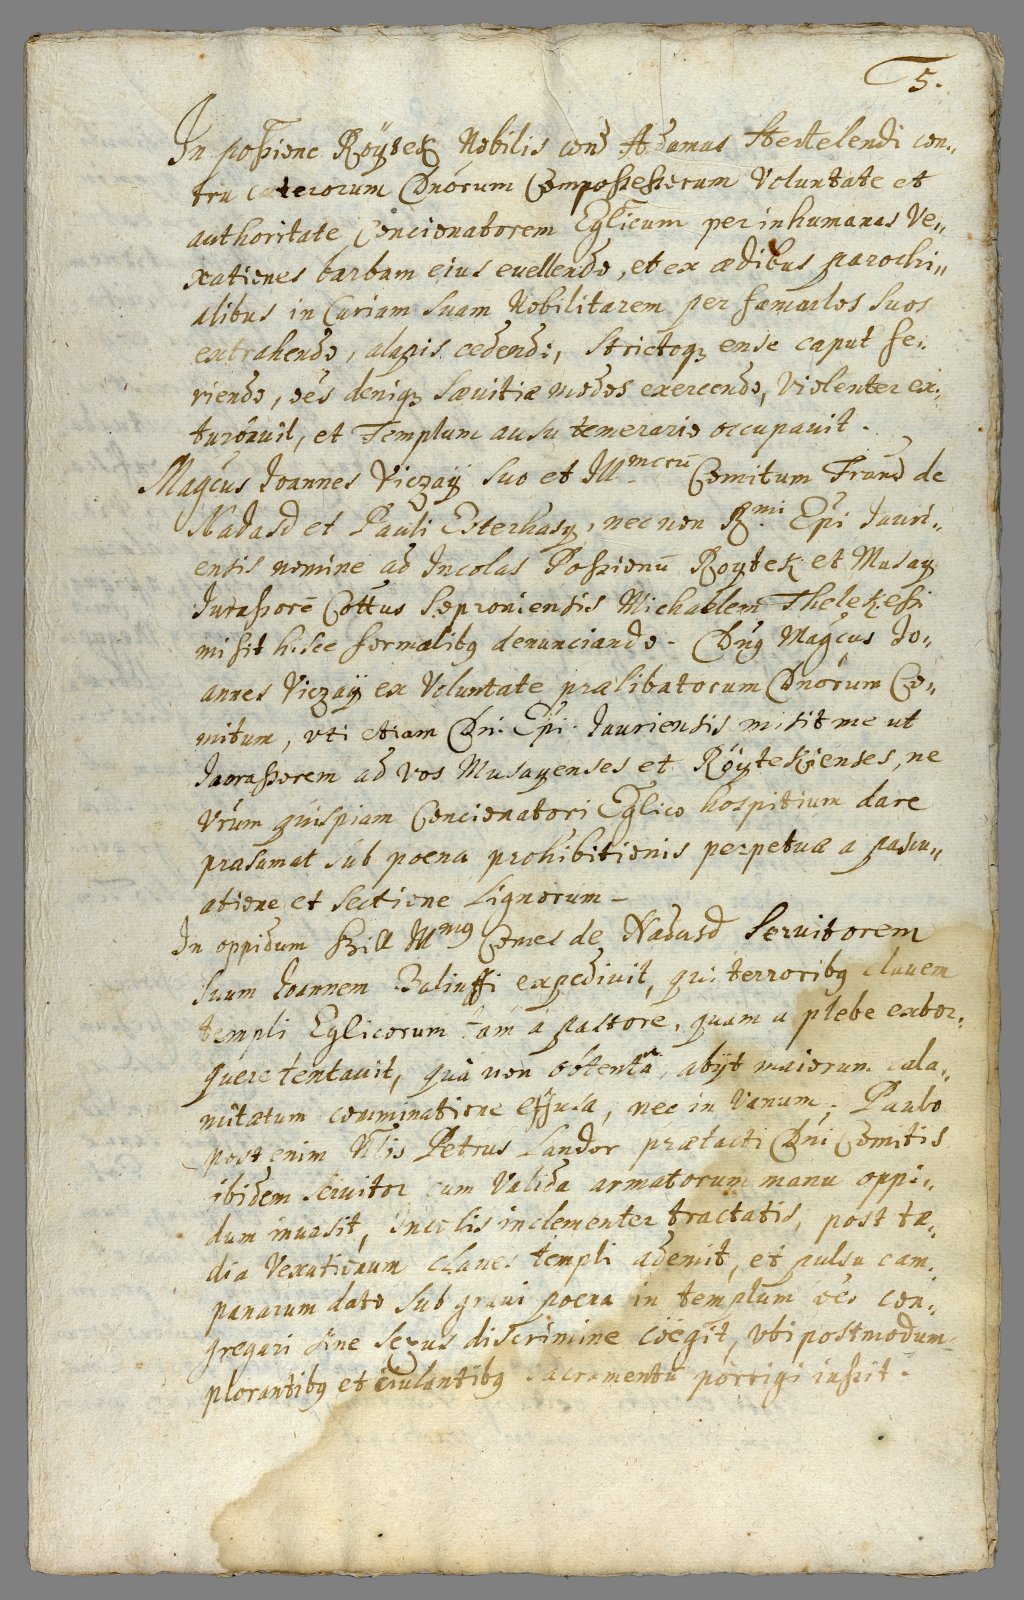 5.
In possione Röytek Nobilis cond Adamus Hertelendi con„
tra caeterorum Dnorum Compossessorum Voluntate et
authoritate Concionatorem Eglicum per inhumanas Ve„
xationes barbam eius euellendo, et ex ædibus parochi„
alibus in Curiam suam Nobilitarem per famulos suos
extrahendo, alapis cedendi, strictoqꝫ ense caput fe„
riendo, oēs deniqꝫ sævitiæ modos exercendo, violenter ex„
turbauit, et Templum ausu temerario occupauit.
Magcus Joannes Viczaÿ suo et Illmmorū Comitum Franc de
Nadasd et Pauli Esterhasy, nec non Rmi Epi Jauri„
ensis nomine ad Incolas Possionū Röytek et Musay
Jurassorē Cottus Soproniensis Michaelem Thelekessi
misit hisce formalibꝫ denunciando. Dnꝫ Magcus Jo„
annes Viczaÿ ex Voluntate prælibatorum Dnorum Co„
mitum, uti etiam Dni Epi Jauriensis misit me ut
Jurassorem ad vos Musayenses et Röytekienses, ne
Vrūm quispiam Concionatori Eglico hospitium dare
præsumat sub poena prohibitionis perpetuæ a pascu„
atione et sectione Lignorum.
In oppidum Szill Illmꝫ Comes de Nadasd Seruitorem
suum Joannem Baliuffi expediuit, qui terroribꝫ clauem
templi Eglicorum tam a pastore, quam a plebe extor„
quere tentauit, quâ non obtentâ, abijt maiorum cala„
mitatum comminatione effusa, nec in Vanum; Paulo
post enim Nlis Petrus Landor prætacti Dni Comitis
ibidem seruitor cum Valida armatorum manu oppi„
dum inuasit, incolis inclementer tractatis, post tæ„
dia Vexationum claues templi ademit, et pulsu cam„
panarum dato sub graui poena in templum oēs con„
gregari sine sexus discrimine coëgit, vbi postmodum
plorantibꝫ et eiulantibꝫ sacramentū porrigi iussit.